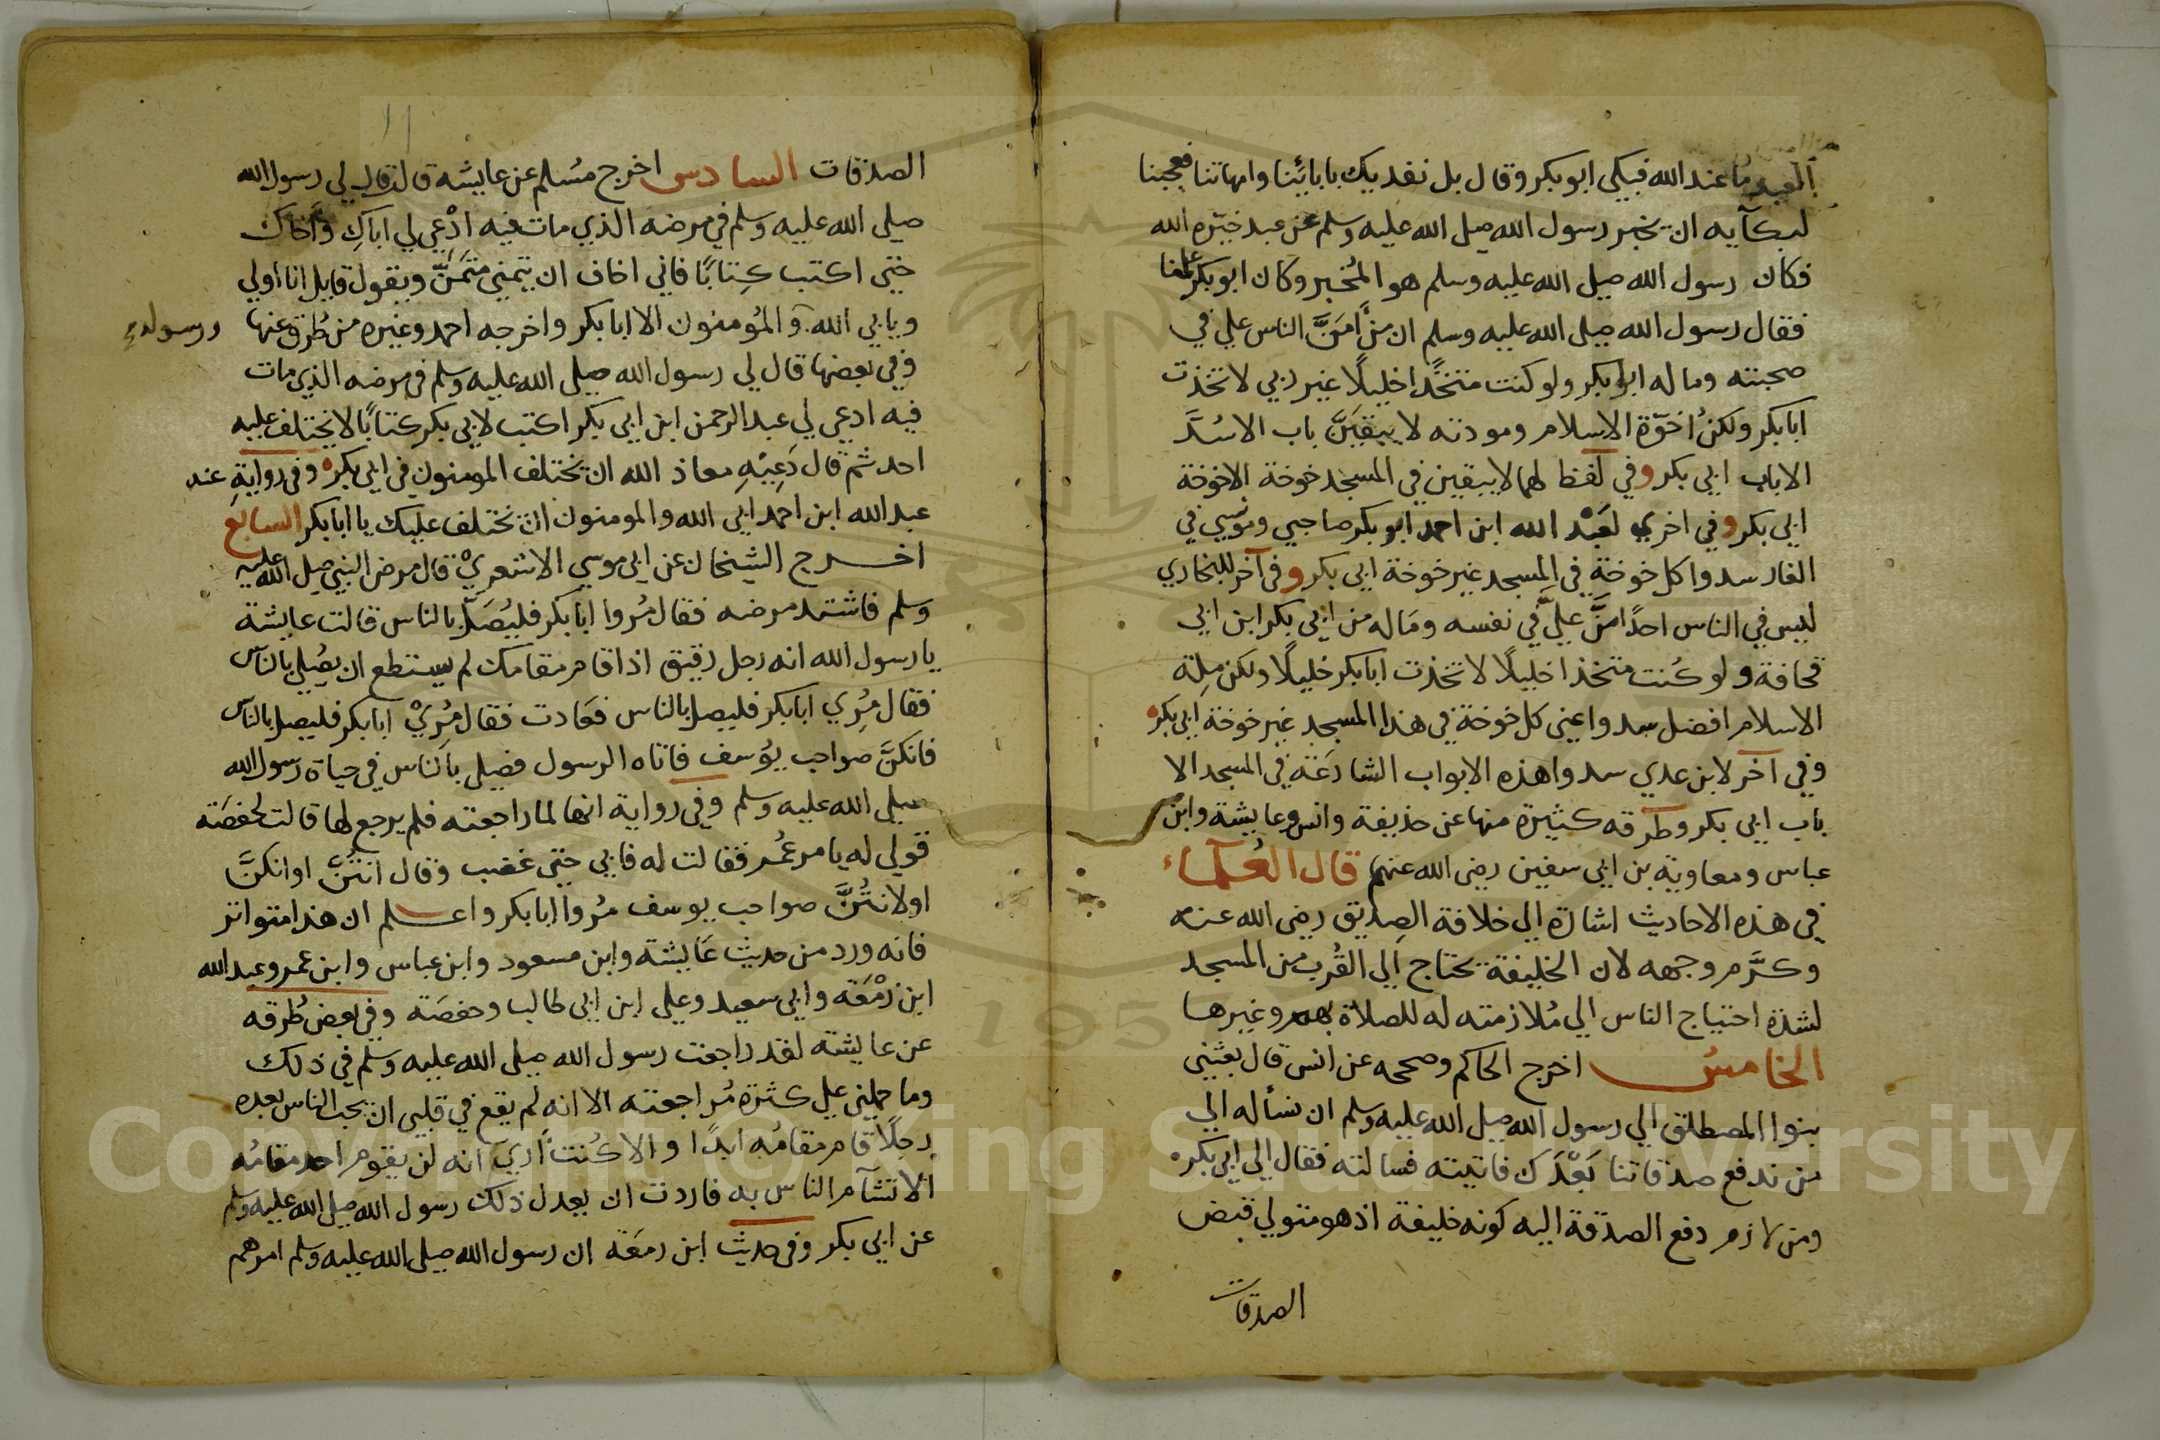 العبد ما عند الله فبكي ابو بكر وقال بل نفديك بابائنا وامهاتنا فعجبنا
لبكآيه ان يخبر رسول الله صلى الله عليه وسلم عن عبد خيره الله
فكان رسول الله صلى الله عليه وسلم هو المُخبر وكان ابو بكر علمنا
فقال رسول الله صلى الله عليه وسلم ان من أمَنَّ الناس علي في
صحبته وماله ابو بكر ولو كنت متخذًا خليلًا غير ربي لاتخذت
ابا بكر ولكن اخوّة الاسلام ومودته لا يبقيَنَّ باب الا سُدَّ
الا باب ابي بكر وفي لفظ لهما لا يبقين في المسجد خوخة الا خوخة
ابي بكر وفي اخري لعَبْد الله ابن احمد ابو بكر صاحبي ومؤنسي في
الغار سدوا كل خوخةٍ في المسجد غير خوخة ابي بكر وفي آخر للبخاري
ليس في الناس احدًا امَنَّ عليَّ في نفسه وماله من ابي بكر ابن ابي
قحافة ولو كُنت متخذا خليلًا لاتخذت ابا بكر خليلًا ولكن مِلة
الاسلام افضل سدوا عني كل خوخة في هذا المسجد غير خوخة ابي بكر
وفي آخر لابن عدي سدوا هذه الابواب الشارعَة في المسجد الا
باب ابي بكر وطرقه كثيرة منها عن حذيفة وانس وعايشة وابن
عباس ومعاوية بن ابي سفين رضى الله عنهم قال العُلمآء
في هذه الاحاديث اشارة الي خلافة الصِديق رضى الله عنه
وكرَّم وجهه لان الخليفة يحتاج الي القُرب من المسجد
لشدة احتياج الناس الي مُلازمته له للصلاة بهم وغيرها
الخامسُ اخرج الحاكم وصححه عن انس قال بعثني
بنوا المصطلق الي رسول الله صلى الله عليه وسلم ان نسأله الي
من ندفع صدقاتنا بَعْدَك فاتيته فسالته فقال الي ابي بكر
ومن لازم دفع الصدقة اليه كونه خليفة اذ هو متولي قبض
الصدقات
١١
الصدقات السادس اخرج مُسلم عن عايشه قالت قال لي رسول الله
صلى الله عليه وسلم في مرضه الذي مات فيه ادْعي لي اباكِ وأخاك
حتى اكتب كِتابًا فاني اخاف ان يتمنى متمَنٍّ ويقول قايل انا اولي
ويابي الله والمُومنون الا ابا بكر واخرجه احمد وغيره من طُرق عنها
ورسوله
وفي بعضها قال لي رسول الله صلى الله عليه وسلم في مرضه الذي مات
فيه ادعي لي عبد الرحمن ابن ابي بكر اكتب لابي بكر كتابًا لا يختلف عليه
احد ثم قال دَعِيْهِ معاذ الله ان يختلف المومنون في ابي بكر وفي روايةٍ عند
عبد الله ابن احمد ابي الله والمومنون ان تختلف عليك يا ابا بكر السابع
اخرج الشيخان عن ابي موسي الاشعريْ قال مرض النبي صلى الله عليه
وسلم فاشتد مرضه فقال مُروا ابا بكر فليُصَلّ بالناس قالت عايشة
يا رسول الله انه رجل رقيق اذا قام مقامك لم يستطع ان يصُلي بالناس
فقال مُرِي ابا بكر فليصل بالناس فعَادت فقال مُرِيْ ابا بكر فليصل بالناس
فانكنَّ صواحب يُوسف فاتاه الرسول فصلي بالناس في حياة رسول الله
صلى الله عليه وسلم وفي رواية انها لما راجعته فلم يرجع لها قالت لحفصَة
قولي له يامر عُمر فقالت له فابي حتى غضب وقال انتُنَّ او انكنَّ
او لانتُنَّ صواحب يوسف مُروا ابا بكر واعلم ان هذا متواتر
فانه ورد من حديث عَايشة وابن مسعود وابن عباس وابن عمر وعبد الله
ابن زمْعَة وابي سعيد وعلي ابن ابي طالب وحفصَة وفي بعض طُرقه
عن عايشة لقد راجعت رسول الله صلى الله عليه وسلم في ذلك
وما حملني علي كثرة مُراجعته الا انه لم يقع في قلبي ان يحب الناس بعده
رجلًا قام مقامُه ابدًا والا كُنت أري انه لن يقوم احد مقامُه
الا تشآم الناس به فاردت ان يعدل ذلك رسول الله صلى الله عليه وسلم
عن ابي بكر وفي حديث ابن زمعَة ان رسول الله صلى الله عليه وسلم امرهم
Copyright © King Saud University
195